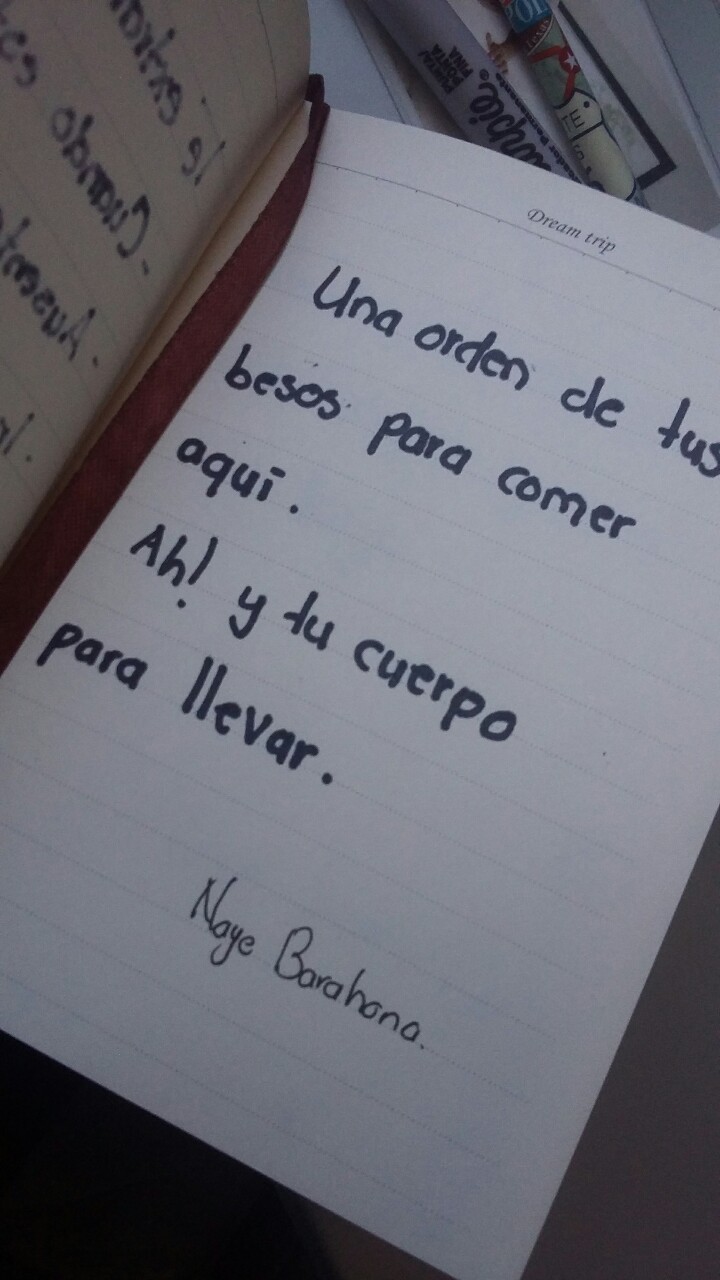 Dream trip
Una orden de tus
besos para comer
aquí.
Ah! y tu cuerpo
para llevar.
Naye Barahona.
le extra
Cuando
PUNTA
PINA